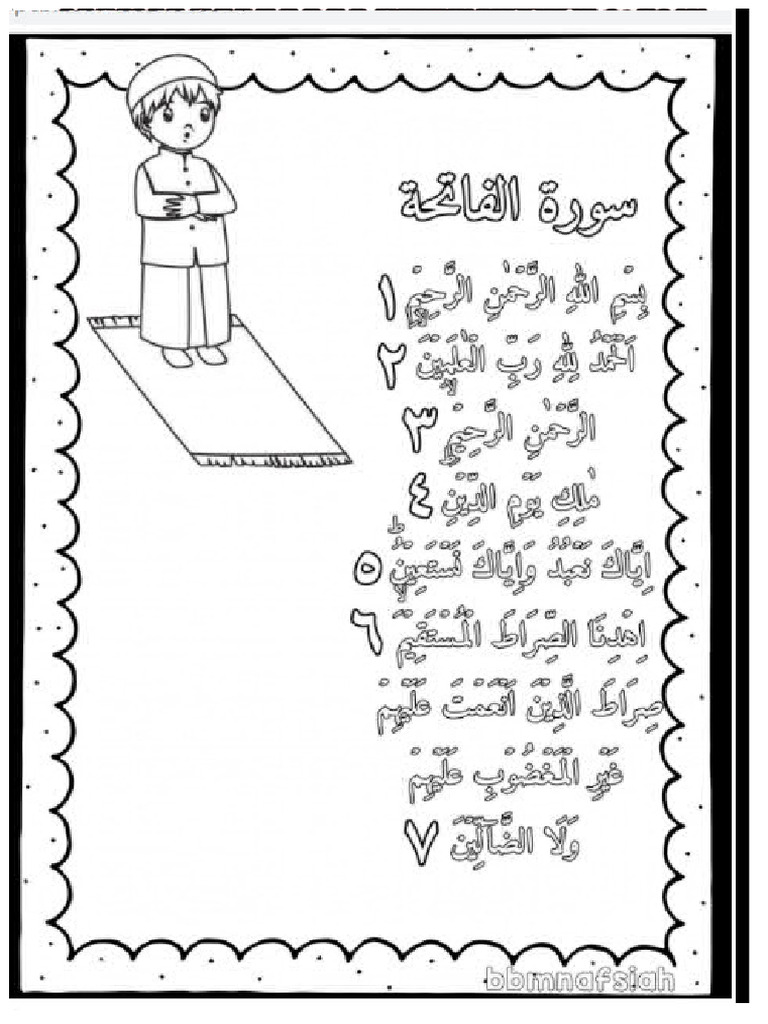 سورة الفاتحة
بِسْمِ اللّٰهِ الرَّحْمٰنِ الرَّحِيْمِ ١
اَلْحَمْدُ لِلّٰهِ رَبِّ الْعٰلَمِيْنَۙ ٢
الرَّحْمٰنِ الرَّحِيْمِۙ ٣
مٰلِكِ يَوْمِ الدِّيْنِۗ ٤
اِيَّاكَ نَعْبُدُ وَاِيَّاكَ نَسْتَعِيْنُۗ ٥
اِهْدِنَا الصِّرَاطَ الْمُسْتَقِيْمَۙ ٦
صِرَاطَ الَّذِيْنَ اَنْعَمْتَ عَلَيْهِمْ
غَيْرِ الْمَغْضُوْبِ عَلَيْهِمْ
وَلَا الضَّاۤلِّيْنَ ٧
bbmnafsiah